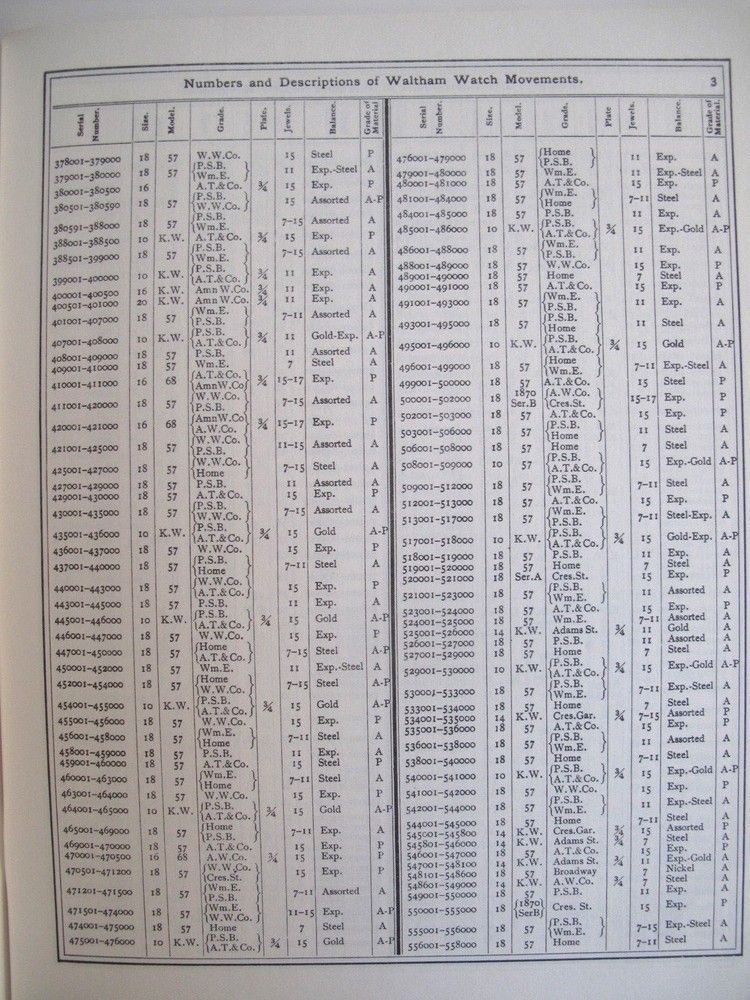 Numbers and Descriptions of Waltham Watch Movements. 3
Serial Number. Size. Model. Grade. Plate. Jewels. Balance. Grade of Material
378001-379000 18 57 W.W.Co. 15 Steel P
379001-380000 18 57 {P.S.B. Wm.E.} 11 Exp.-Steel A
380001-380500 16 A.T.&Co. ¾ 15 Exp. P
380501-380590 18 57 {P.S.B. W.W.Co.} 15 Assorted A-P
380591-388000 18 57 {P.S.B. Wm.E.} 7-15 Assorted A
388001-388500 10 K.W. A.T.&Co. ¾ 15 Exp. P
388501-399000 18 57 {P.S.B. Wm.E.} 7-15 Assorted A
399001-400000 10 K.W. {P.S.B. A.T.&Co.} ¾ 11 Exp. A
400001-400500 16 K.W. Amn W.Co. ¾ 11 Exp. A
400501-401000 20 K.W. Amn W.Co. ¾ 11 Exp. A
401001-407000 18 57 {Wm.E. P.S.B.} 7-11 Assorted A
407001-408000 10 K.W. {P.S.B. A.T.&Co.} ¾ 11 Gold-Exp. A-P
408001-409000 18 57 P.S.B. 11 Assorted A
409001-410000 18 57 Wm.E. 7 Steel A
410001-411000 16 68 {A.T.&Co. AmnW.Co} ¾ 15-17 Exp. P
411001-420000 18 57 {W.W.Co. P.S.B.} 7-15 Assorted A
420001-421000 16 68 {AmnW.Co A.W.Co.} ¾ 15-17 Exp. P
421001-425000 18 57 {W.W.Co. P.S.B.} 11-15 Assorted A
425001-427000 18 57 {W.W.Co. Home} 7-15 Steel A
427001-429000 18 57 P.S.B. 11 Assorted A
429001-430000 18 57 A.T.&Co. 15 Exp. P
430001-435000 18 57 {P.S.B. W.W.Co.} 7-15 Assorted A
435001-436000 10 K.W. {P.S.B. A.T.&Co.} ¾ 15 Gold A-P
436001-437000 18 57 W.W.Co. 15 Exp. P
437001-440000 18 57 {P.S.B. Home} 7-11 Steel A
440001-443000 18 57 {W.W.Co. A.T.&Co.} 15 Exp. P
443001-445000 18 57 P.S.B. 11 Exp. A
445001-446000 10 K.W. {P.S.B. A.T.&Co.} ¾ 15 Gold A-P
446001-447000 18 57 W.W.Co. 15 Exp. P
447001-450000 18 57 {Home A.T.&Co.} 7-15 Steel A-P
450001-452000 18 57 Wm.E. 11 Exp.-Steel A
452001-454000 18 57 {Home W.W.Co.} 7-15 Steel A-P
454001-455000 10 K.W. {P.S.B. A.T.&Co.} ¾ 15 Gold A-P
455001-456000 18 57 W.W.Co. 15 Exp. P
456001-458000 18 57 {Wm.E. Home} 7-11 Steel A
458001-459000 18 57 P.S.B. 11 Exp. A
459001-460000 18 57 A.T.&Co. 15 Steel P
460001-463000 18 57 {Wm.E. Home} 7-11 Steel A
463001-464000 18 57 W.W.Co. 15 Exp. P
464001-465000 10 K.W. {P.S.B. A.T.&Co.} ¾ 15 Gold A-P
465001-469000 18 57 {Home P.S.B.} 7-11 Exp. A
469001-470000 18 57 A.T.&Co. 15 Exp. P
470001-470500 16 68 A.W.Co. ¾ 15 Exp. P
470501-471200 18 57 {W.W.Co. Cres.St.} 15 Exp. P
471201-471500 18 57 {Wm.E. P.S.B.} 7-11 Assorted A
471501-474000 18 57 {Wm.E. W.W.Co.} 11-15 Exp. A-P
474001-475000 18 57 Home 7 Steel A
475001-476000 10 K.W. {P.S.B. A.T.&Co.} ¾ 15 Gold A-P
Serial Number. Size. Model. Grade. Plate Jewels. Balance. Grade of Material.
476001-479000 18 57 {Home P.S.B.} 11 Exp. A
479001-480000 18 57 Wm.E. 11 Exp.-Steel A
480001-481000 18 57 A.T.&Co. 15 Exp. P
481001-484000 18 57 {Wm.E. Home} 7-11 Steel A
484001-485000 18 57 P.S.B. 11 Exp. A
485001-486000 10 K.W. {P.S.B. A.T.&Co.} ¾ 15 Exp.-Gold A-P
486001-488000 18 57 {Wm.E. P.S.B.} 11 Exp. A
488001-489000 18 57 W.W.Co. 15 Exp. P
489001-490000 18 57 Home 7 Steel A
490001-491000 18 57 A.T.&Co. 15 Exp. P
491001-493000 18 57 {Wm.E. P.S.B.} 11 Exp. A
493001-495000 18 57 {P.S.B. Home} 11 Steel A
495001-496000 10 K.W. {P.S.B. A.T.&Co.} ¾ 15 Gold A-P
496001-499000 18 57 {Home Wm.E.} 7-11 Exp.-Steel A
499001-500000 18 57 A.T.&Co. 15 Steel P
500001-502000 18 1870 Ser.B {A.W.Co. Cres.St.} 15-17 Exp. P
502001-503000 18 57 A.T.&Co. 15 Exp. P
503001-506000 18 57 {P.S.B. Home} 11 Steel A
506001-508000 18 57 Home 7 Steel A
508001-509000 10 K.W. {P.S.B. A.T.&Co.} 15 Exp.-Gold A-P
509001-512000 18 57 {P.S.B. Wm.E.} 7-11 Steel A
512001-513000 18 57 A.T.&Co. 15 Exp. P
513001-517000 18 57 {Wm.E. P.S.B.} 7-11 Steel-Exp. A
517001-518000 10 K.W. {P.S.B. A.T.&Co.} ¾ 15 Gold-Exp. A-P
518001-519000 18 57 P.S.B. 11 Exp. A
519001-520000 18 57 Home 7 Steel A
520001-521000 18 Ser.A Cres.St. 15 Exp. P
521001-523000 18 57 {P.S.B. Wm.E.} 11 Assorted A
523001-524000 18 57 A.T.&Co. 15 Exp. P
524001-525000 18 57 Wm.E. 7-11 Assorted A
525001-526000 14 K.W. Adams St. ¾ 11 Gold A
526001-527000 18 57 P.S.B. 11 Assorted A
527001-529000 18 57 Home 7 Steel A
529001-530000 10 K.W. {P.S.B. A.T.&Co.} ¾ 15 Exp.-Gold A-P
530001-533000 18 57 {P.S.B. Wm.E.} 7-11 Exp.-Steel A
533001-534000 18 57 Home 7 Steel A
534001-535000 14 K.W. Cres.Gar. ¾ 7-15 Assorted P
535001-536000 18 57 A.T.&Co. 15 Exp. P
536001-538000 18 57 {P.S.B. Wm.E.} 11 Assorted A
538001-540000 18 57 Home 7-11 Steel A
540001-541000 10 K.W. {P.S.B. A.T.&Co.} ¾ 15 Exp.-Gold A-P
541001-542000 18 57 W.W.Co. 15 Exp. P
542001-544000 18 57 {P.S.B. Wm.E.} 11 Exp.-Steel A
544001-545000 18 57 Home 7-11 Steel A
545001-545800 14 K.W. Cres.Gar. ¾ 15 Assorted P
545801-546000 14 K.W. Adams St. ¾ 7 Steel A
546001-547000 18 57 A.T.&Co. 15 Exp. P
547001-548100 14 K.W. Adams St. ¾ 11 Exp.-Gold A
548101-548600 18 57 Broadway 7 Nickel A
548601-549000 14 K.W. A.W.Co. ¾ 7 Steel A
549001-550000 18 57 P.S.B. 11 Exp. A
550001-555000 18 {1870 SerB} Cres. St. 15 Exp. P
555001-556000 18 57 {P.S.B. Wm.E.} 7-15 Exp.-Steel A
556001-558000 18 57 Home 7-11 Steel A